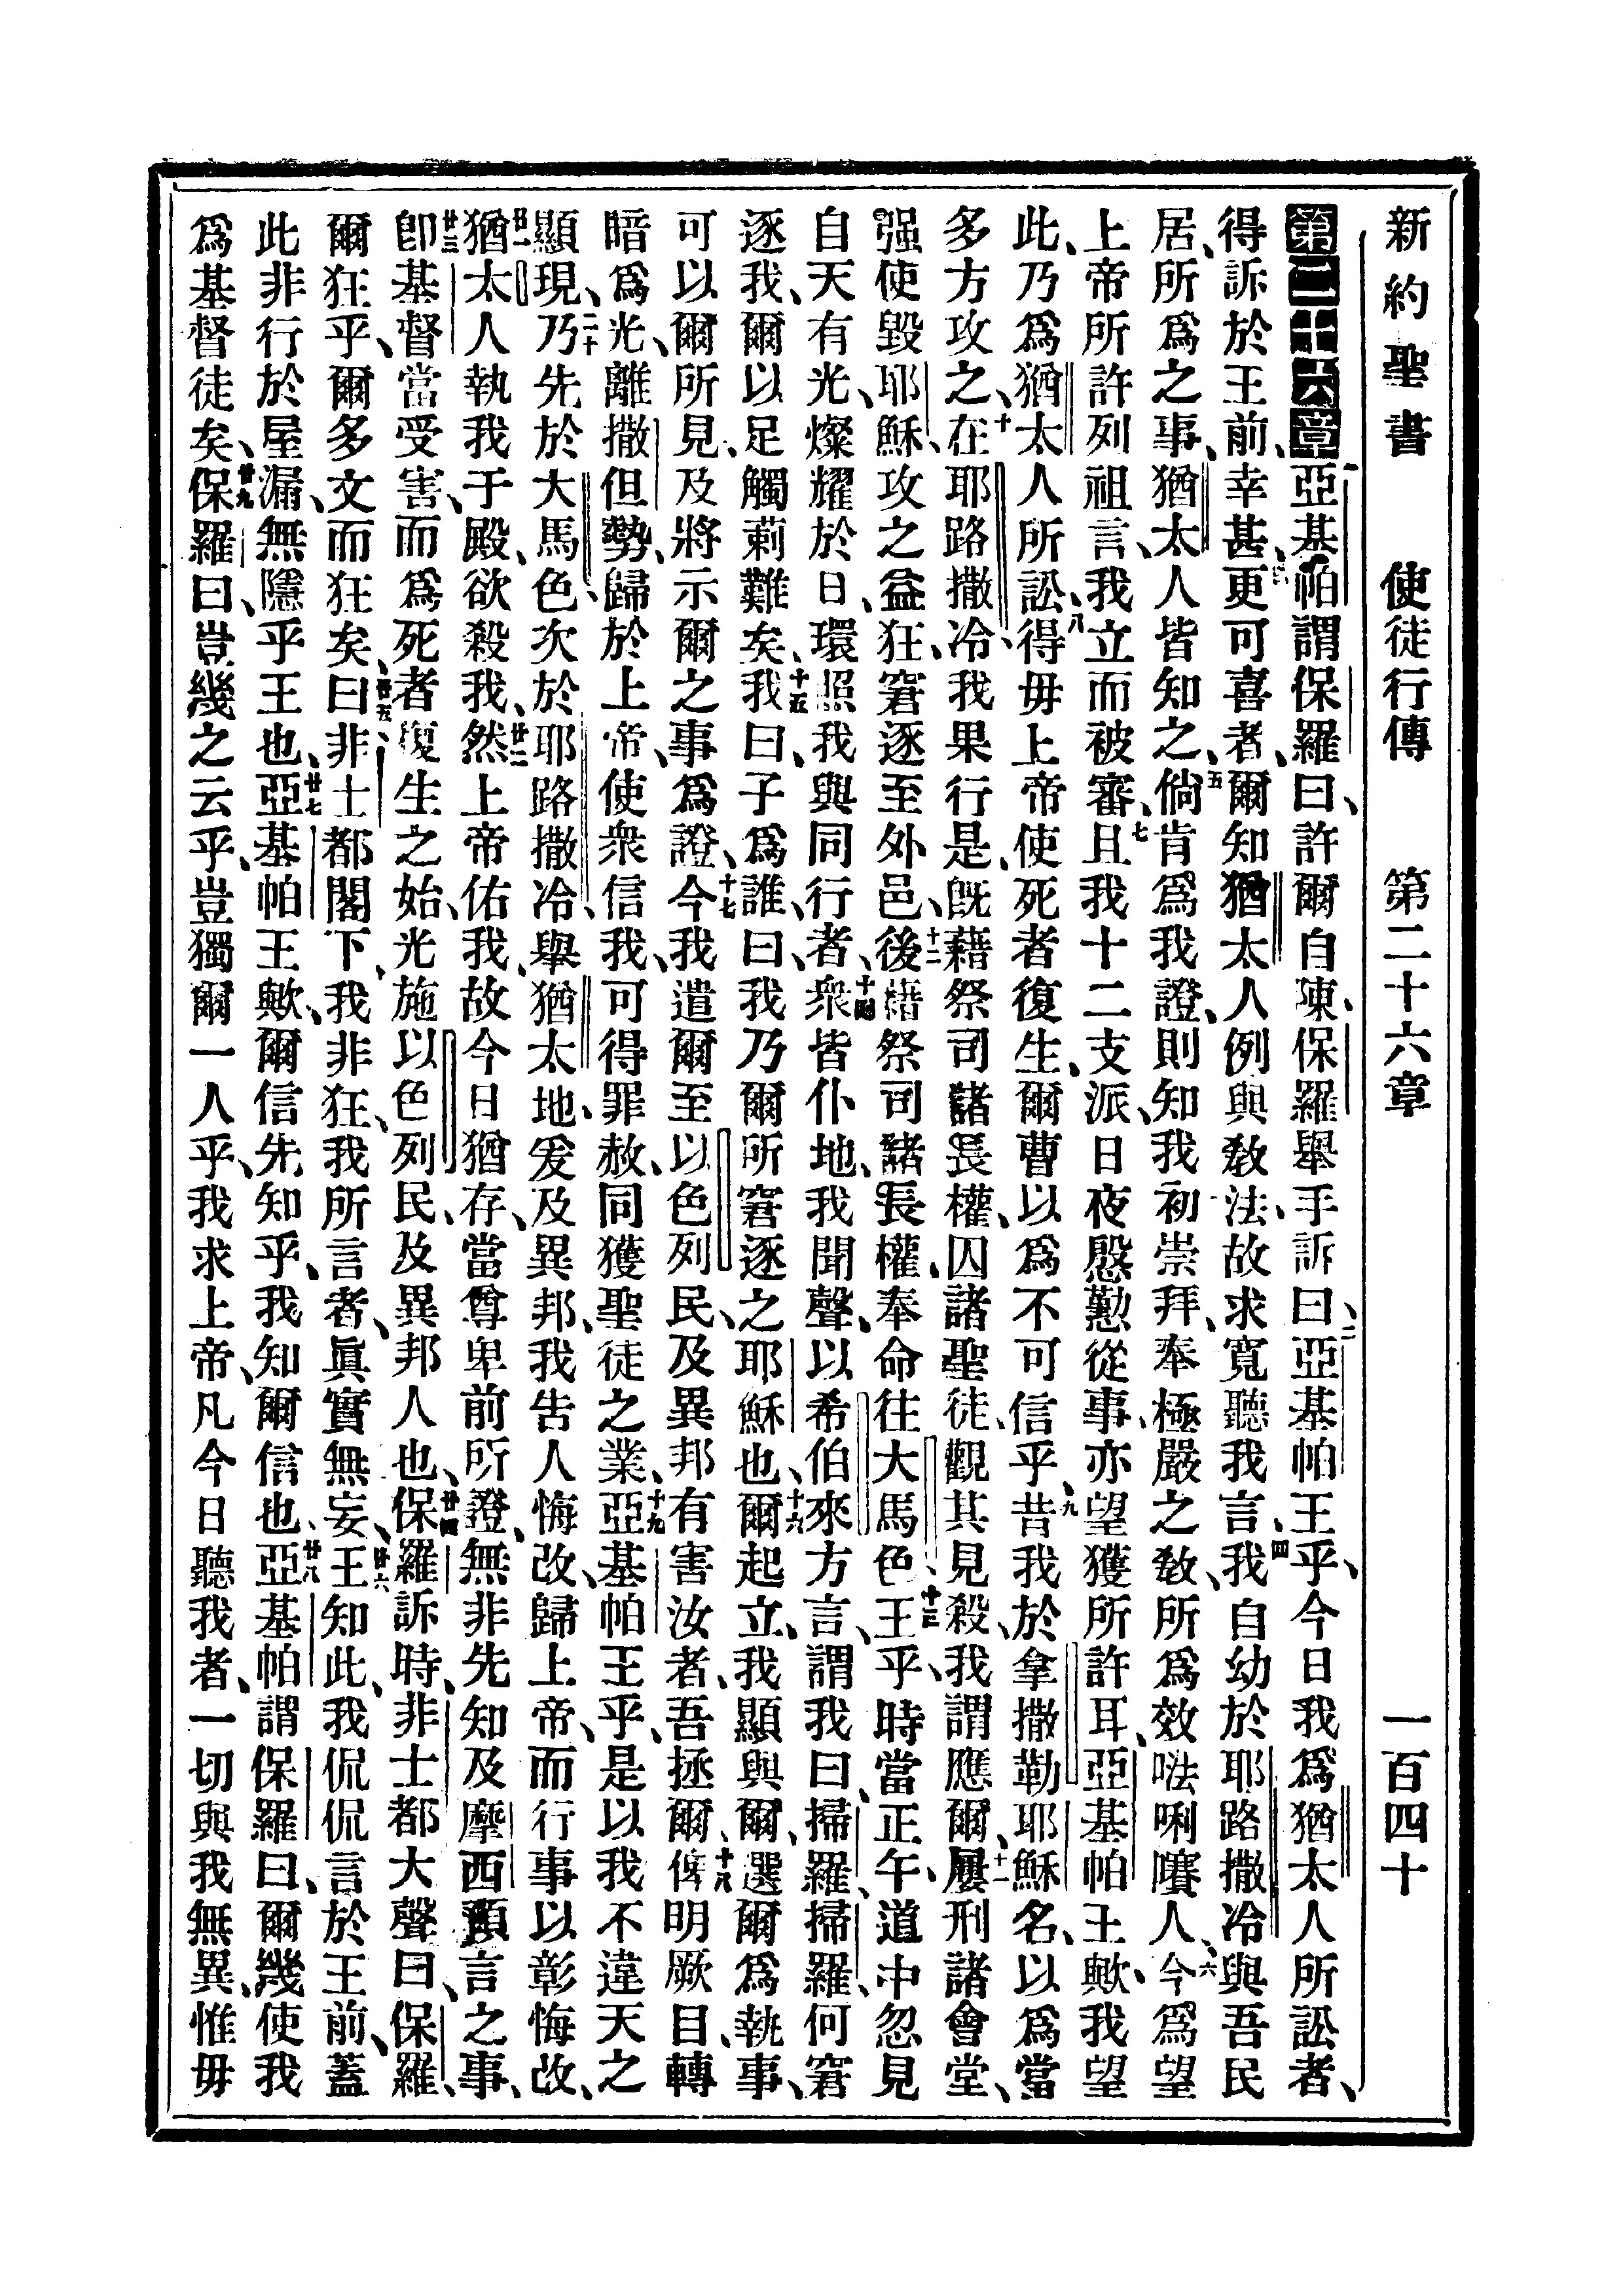 新約聖書 使徒行傳 第二十六章 一百四十
第二十六章亞基帕謂保羅曰、許爾自陳、保羅舉手訴曰、二亞基帕王乎、今日我爲猶太人所訟者、
得訴於王前、幸甚、三更可喜者、爾知猶太人例與敎法、故求寬聽我言、四我自幼於耶路撒冷與吾民
居、所爲之事、猶太人皆知之、五倘肯爲我證、則知我初崇拜、奉極嚴之敎、所爲效𠵽唎嚽人、六今爲望
上帝所許列祖言、我立而被審、七且我十二支派、日夜慇懃從事、亦望獲所許耳、亞基帕王歟、我望
此、乃爲猶太人所訟、八得毋上帝使死者復生、爾曹以爲不可信乎、九昔我於拿撒勒耶穌名、以爲當
多方攻之、十在耶路撒冷、我果行是、旣藉祭司諸長權、囚諸聖徒、觀其見殺、我謂應爾、十一屢刑諸會堂、
强使毀耶穌、攻之益狂、窘逐至外邑、十二後藉祭司諸長權、奉命往大馬色、十三王乎、時當正午、道中忽見
自天有光、燦耀於日、環照我與同行者、十四衆皆仆地、我聞聲、以希伯來方言、謂我曰、掃羅、掃羅、何窘
逐我、爾以足觸刺難矣、十五我曰、子爲誰、曰、我乃爾所窘逐之耶穌也、十六爾起立、我顯與爾、選爾爲執事、
可以爾所見、及將示爾之事爲證、十七今我遣爾至以色列民、及異邦有害汝者、吾拯爾、十八俾明厥目、轉
暗爲光、離撒但勢、歸於上帝、使衆信我、可得罪赦、同獲聖徒之業、十九亞基帕王乎、是以我不違天之
顯現、二十乃先於大馬色、次於耶路撒冷、舉猶太地、爰及異邦、我告人悔改、歸上帝、而行事以彰悔改、
廿一猶太人執我于殿、欲殺我、廿二然上帝佑我、故今日猶存、當尊卑前所證、無非先知及摩西預言之事、
廿三卽基督當受害、而爲死者復生之始、光施以色列民、及異邦人也、廿四保羅訴時、非士都大聲曰、保羅、
爾狂乎、爾多文而狂矣、廿五曰、非士都閣下、我非狂、我所言者、眞實無妄、廿六王知此、我侃侃言於王前、蓋
此非行於屋漏、無隱乎王也、廿七亞基帕王歟、爾信先知乎、我知爾信也、廿八亞基帕謂保羅曰、爾幾使我
爲基督徒矣、廿九保羅曰、豈幾之云乎、豈獨爾一人乎、我求上帝、凡今日聽我者、一切與我無異、惟毋